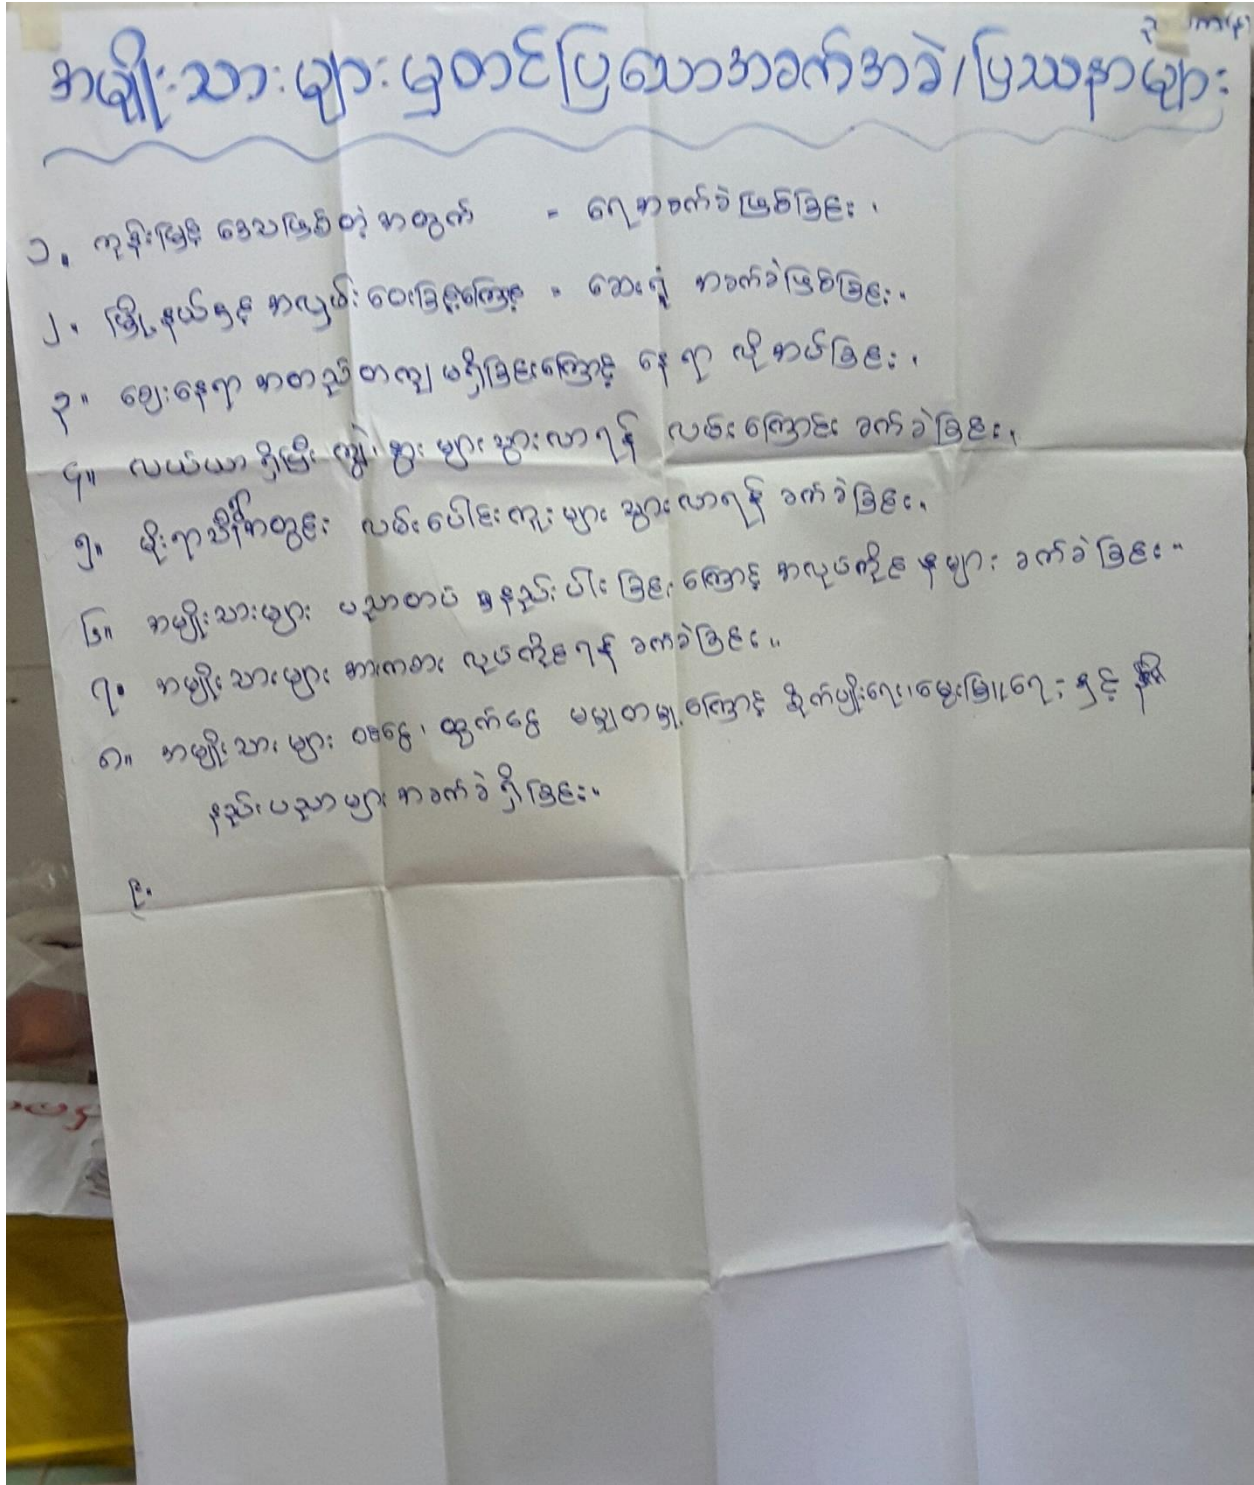 အမျိုးသားများမှတင်ပြသောအခက်အခဲ/ပြဿနာများ
၁။ ကုန်းမြင့် ဒေသဖြစ်တဲ့ အတွက် = ရေအခက်ခဲဖြစ်ခြင်း၊
၂။ မြို့နယ်နှင့် အလှမ်းဝေးခြင့်ကြောင့် = ဆေးရုံ အခက်ခဲဖြစ်ခြင်း၊
၃။ ဈေးနေရာ အတည်တကျ မရှိခြင်းကြောင့် နေရာ လိုအပ်ခြင်း၊
၄။ လယ်ယာ ရှိပြီး ကျွဲ၊ နွား များသွားလာရန် လမ်းကြောင်း ခက်ခဲခြင်း၊
၅။ မိုးရာသီအတွင်း လမ်းပေါင်းကူးများ သွားလာရန် ခက်ခဲခြင်း၊
၆။ အမျိုးသားများ ပညာတပ် နည်းပါးခြင်းကြောင့် အလုပ်ကိုင်များ ခက်ခဲခြင်း။
၇။ အမျိုးသားများ အားကစား လုပ်ကိုင်ရန် ခက်ခဲခြင်း။
၈။ အမျိုးသားများ ဝင်ငွေ၊ ထွက်ငွေ မမျှတမှုကြောင့် စိုက်ပျိုးရေး၊မွေးမြူရေးနှင့်
နည်းပညာများ အခက်ခဲ ရှိခြင်း။
၉။